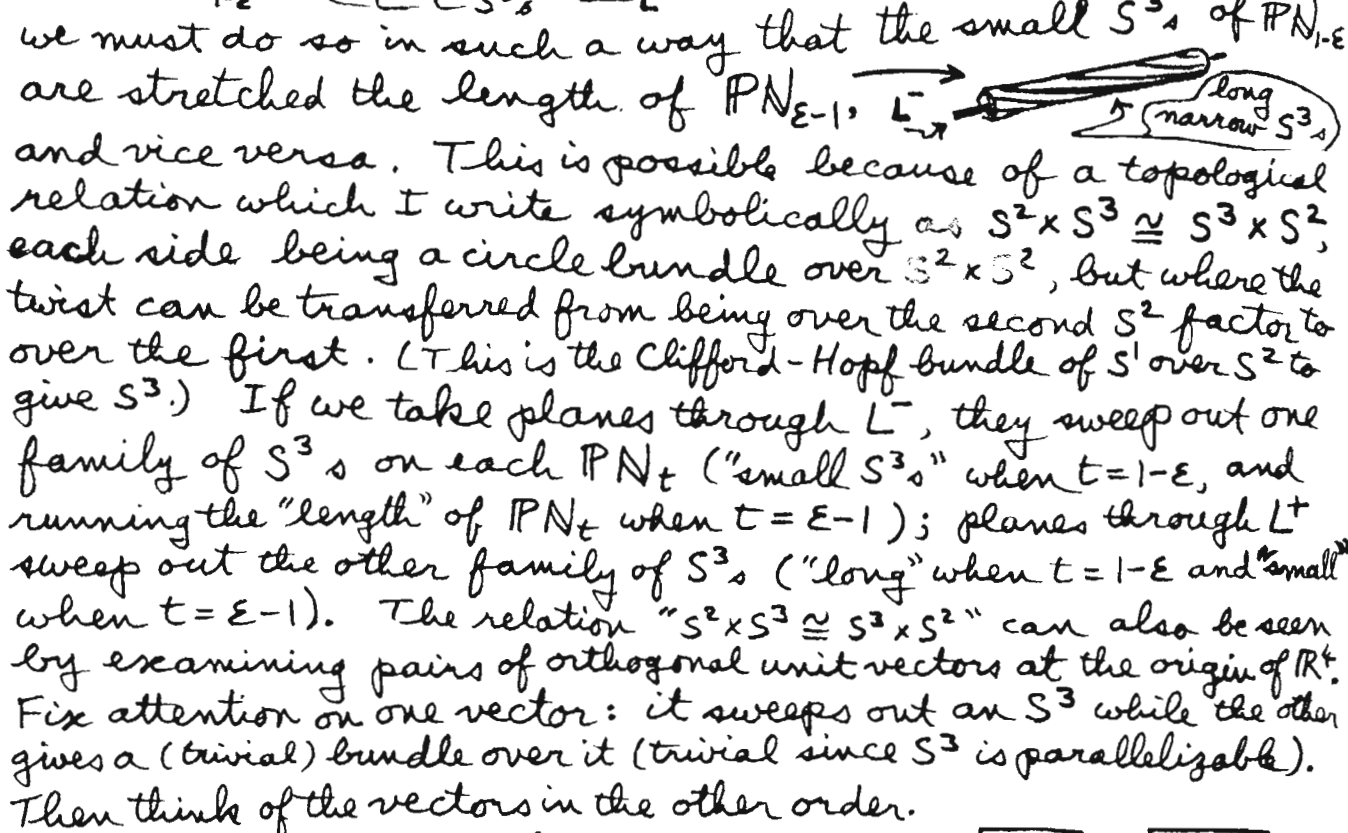 we must do so in such a way that the small S³s of ℙN₁₋ε
are stretched the length of ℙN_ε₋₁, → L⁻ → long narrow S³s
and vice versa. This is possible because of a topological
relation which I write symbolically as S² × S³ ≅ S³ × S²,
each side being a circle bundle over S² × S², but where the
twist can be transferred from being over the second S² factor to
over the first. (This is the Clifford-Hopf bundle of S¹ over S² to
give S³.) If we take planes through L⁻, they sweep out one
family of S³s on each ℙN_t ("small S³s" when t=1-ε, and
running the "length" of ℙN_t when t = ε-1); planes through L⁺
sweep out the other family of S³s ("long" when t = 1-ε and "small"
when t = ε-1). The relation "S² × S³ ≅ S³ × S²" can also be seen
by examining pairs of orthogonal unit vectors at the origin of ℝ⁴.
Fix attention on one vector: it sweeps out an S³ while the other
gives a (trivial) bundle over it (trivial since S³ is parallelizable).
Then think of the vectors in the other order.